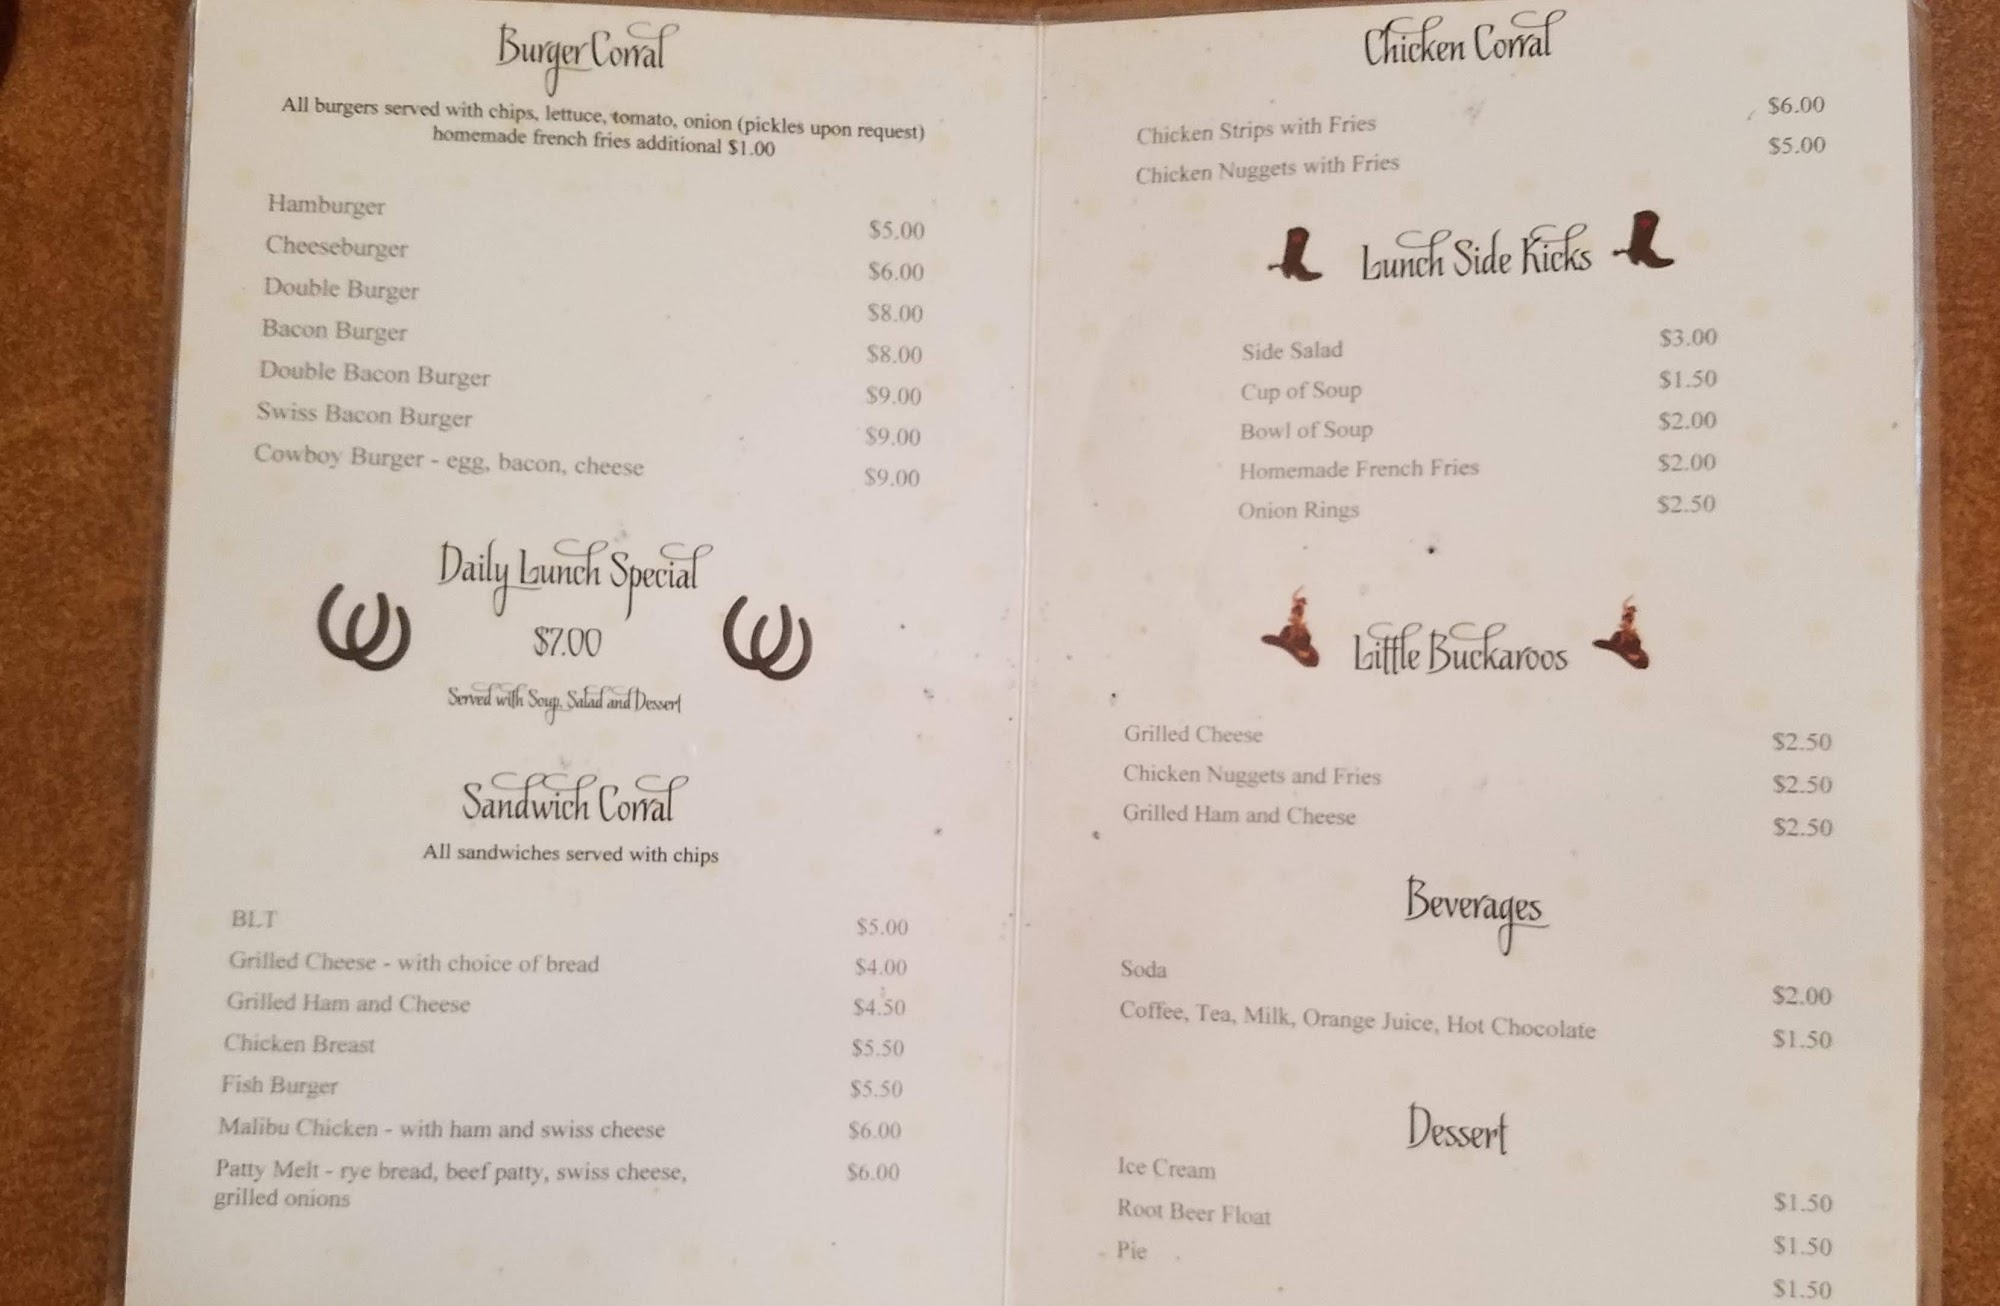 Burger Corral
All burgers served with chips, lettuce, tomato, onion (pickles upon request)
homemade french fries additional $1.00
Hamburger $5.00
Cheeseburger $6.00
Double Burger $8.00
Bacon Burger $8.00
Double Bacon Burger $9.00
Swiss Bacon Burger $9.00
Cowboy Burger - egg, bacon, cheese $9.00
Daily Lunch Special
$7.00
Served with Soup, Salad and Dessert
Sandwich Corral
All sandwiches served with chips
BLT $5.00
Grilled Cheese - with choice of bread $4.00
Grilled Ham and Cheese $4.50
Chicken Breast $5.50
Fish Burger $5.50
Malibu Chicken - with ham and swiss cheese $6.00
Patty Melt - rye bread, beef patty, swiss cheese, $6.00
grilled onions
Chicken Corral
Chicken Strips with Fries $6.00
Chicken Nuggets with Fries $5.00
Lunch Side Kicks
Side Salad $3.00
Cup of Soup $1.50
Bowl of Soup $2.00
Homemade French Fries $2.00
Onion Rings $2.50
Little Buckaroos
Grilled Cheese $2.50
Chicken Nuggets and Fries $2.50
Grilled Ham and Cheese $2.50
Beverages
Soda $2.00
Coffee, Tea, Milk, Orange Juice, Hot Chocolate $1.50
Dessert
Ice Cream $1.50
Root Beer Float $1.50
Pie $1.50